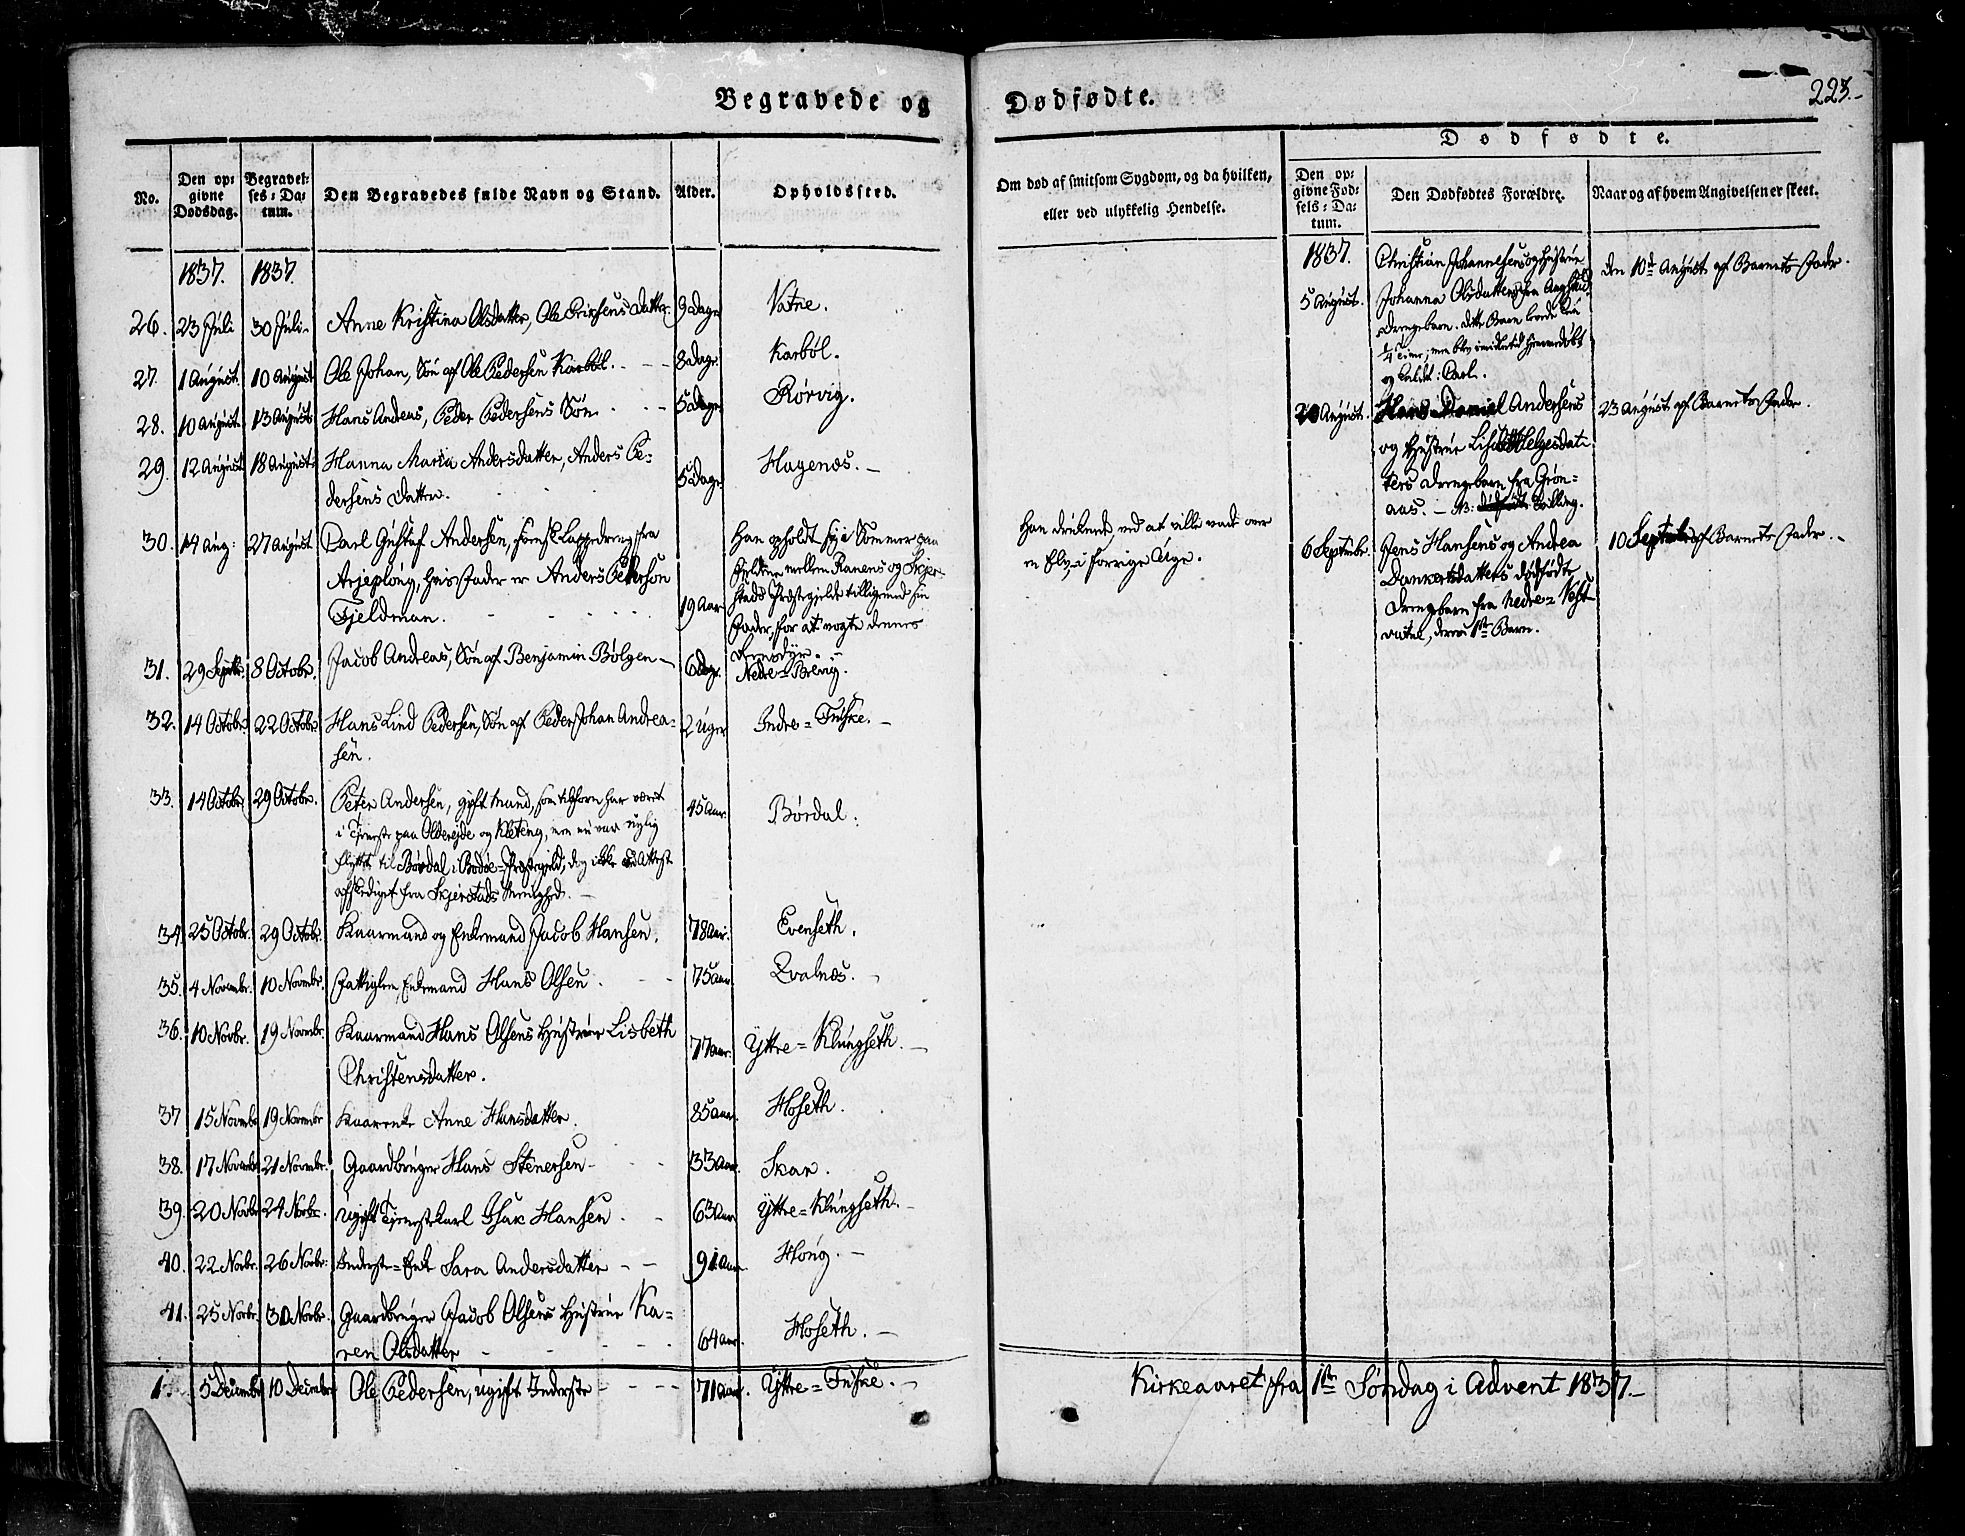 Begravede og Dødfødte.
223.-
No.
Den op-
givne
Dødsdag.
Begravel-
ses-Da-
tum.
Den Begravedes fulde Navn og Stand.
Alder.
Opholdssted.
Om død af smitsom Sygdom, og da hvilken,
eller ved ulykkelig Hendelse.
Dødfødte.
Den op-
givne Fød-
sels-Da-
tum.
Den Dødfødtes Forældre.
Naar og af hvem Angivelsen er skeet.
1837. 1837.
26. 23 Juli 30 Juli Anne Kristina Olsdatter, Ole Erichsens Datter 9 Dage Vatne.
27. 1 August. 10 August Ole Johan, Søn af Ole Pedersen Karbøl. - - 8 Dage. Karbøl.
28. 10 August. 13 August Hans Andreas, Peder Pedersens Søn. - - 5 Dage. Rørvig.
29. 12 August 18 August. Hanna Maria Andersdatter, Anders Pe-
dersens Datter. 5 Dage. Hagenæs. -
30. 14 Aug: 27 August Carl Gustaf Andersen, svensk Lappedreng fra
Arjeplong, hvis Fader er Anders Pederson
Fjeldman. 19 Aar
Han opholdt sig i Sommer paa
Fjeldene mellem Ranens og Skjer-
stads Præstegjelde tilligemed sin
Fader, for at vogte dennes
Rensdyr. -
Han druknede ved at ville vade over
en Elv, i forrige Uge.
31. 29 Septbr. 8 Octobr. Jacob Andreas, Søn af Benjamin Bølgen - 6 Dage. Nedre=Brevig.
32. 14 Octobr. 22 Octobr. Hans Lind Pedersen, Søn af Peder Johan Andrea-
sen. 2 Uger Indre=Fuske. -
33. 14 Octobr. 29 Octobr. Peter Andersen, gift Mand, som tilforn har været
i Tjeneste paa Oldereide og Kleteng, men nu var nylig
flyttet til Børdal i Bodøe=Præstegjeld, dog ikke ved Attest
afskediget fra Skjerstads Menighed. - 45 Aar. Børdal.
34. 25 Octobr. 29 Octobr. Kaarmand og Enkemand Jacob Hansen. 78 Aar. Evenseth.
35. 4 Novembr. 10 Novmbr. Fattiglem, Enkemand Hans Olsen. - - 75 Aar. Kvalnæs. -
36. 10 Novbr. 19 Novmbr. Kaarmand Hans Olsens Hustrue Lisbeth
Christensdatter. 77 Aar. Yttre=Klungseth. -
37 15 Novmbr 19 Novmbr Kaarenke Anne Hansdatter. 85 Aar. Hoseth.
38. 17 Novmbr 21 Novmbr. Gaardbruger Hans Stenersen - 33 Aar. Skar.
39. 20 Novbr 24 Novbr. ugift Tjenestkarl Isak Hansen. - 63 Aar. Yttre=Klungseth. -
40. 22 Novbr. 26 Novbr. Inderste=Enke Sara Andersdatter - - 91 Aar. Hong. -
41. 25 Novbr. 30 Novbr. Gaardbruger Jacob Olsens Hustrue Ka-
ren Olsdatter - - - 64 Aar. Hoseth. -
1. 5 December 10 December Ole Pedersen, ugift Inderste - - - 71 Aar. Yttre=Fuske. -
Kirkeaaret fra 1ste Søndag i Advent 1837. -
1837.
5 August.
Christian Johannesens og Hustrue
Johanna Olsdatters fra
Drengebarn. Dette Barn levede kun
1/4 Time; men blev imidlertid hjemmedøbt
og kaldet: Carl.
den 10de August af Barnets Fader.
20 August.
Daniel Andersens
og Hustrue Lisbet Helgesdat-
ters Drengebarn fra Grøn-
aas. - NB: dødfødt Tvilling.
23 August af Barnets Fader.
6 Septmbr.
Jens Hansens og Andrea
Dankertsdatters dødfødte
Drengebarn fra Nedre=Vest-
vatne, deres 1ste Barn.
10 Septmbr af Barnets Fader. -